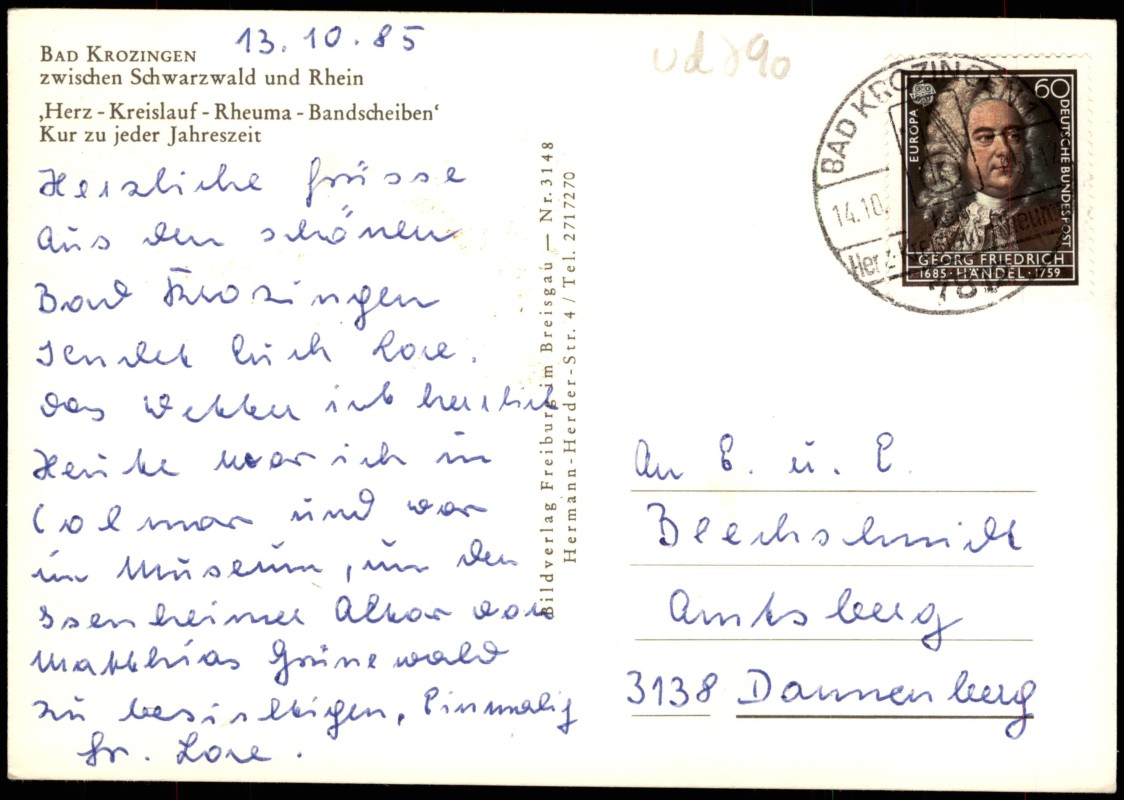 13.10.85
BAD KROZINGEN
zwischen Schwarzwald und Rhein
‚Herz - Kreislauf - Rheuma - Bandscheiben‘
Kur zu jeder Jahreszeit
Herzliche Grüsse
aus dem schönen
Bad Krozingen
sendet Euch Lore.
Das Wetter ist herrlich
Heute war ich in
Colmar und war
im Museum, um den
Isenheimer Altar von
Matthias Grünewald
zu besichtigen, Einmalig
Gr. Lore.
Bildverlag Freiburg im Breisgau — Nr. 3148
Hermann-Herder-Str. 4 / Tel. 2717270
BAD KROZINGEN
14.10.
Herz-Kreislauf Rheuma
7812
EUROPA
60
DEUTSCHE BUNDESPOST
GEORG FRIEDRICH
1685 · HÄNDEL · 1759
An E. u. E.
Blechschmidt
Amtsberg
3138 Dannenberg